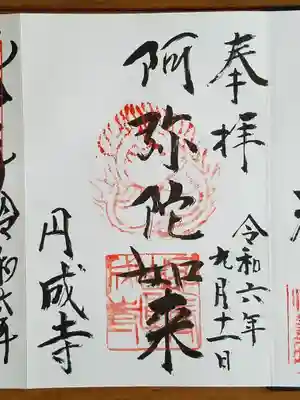 奉拝
令和六年
九月十一日
阿弥陀如来
円成寺
令和六年